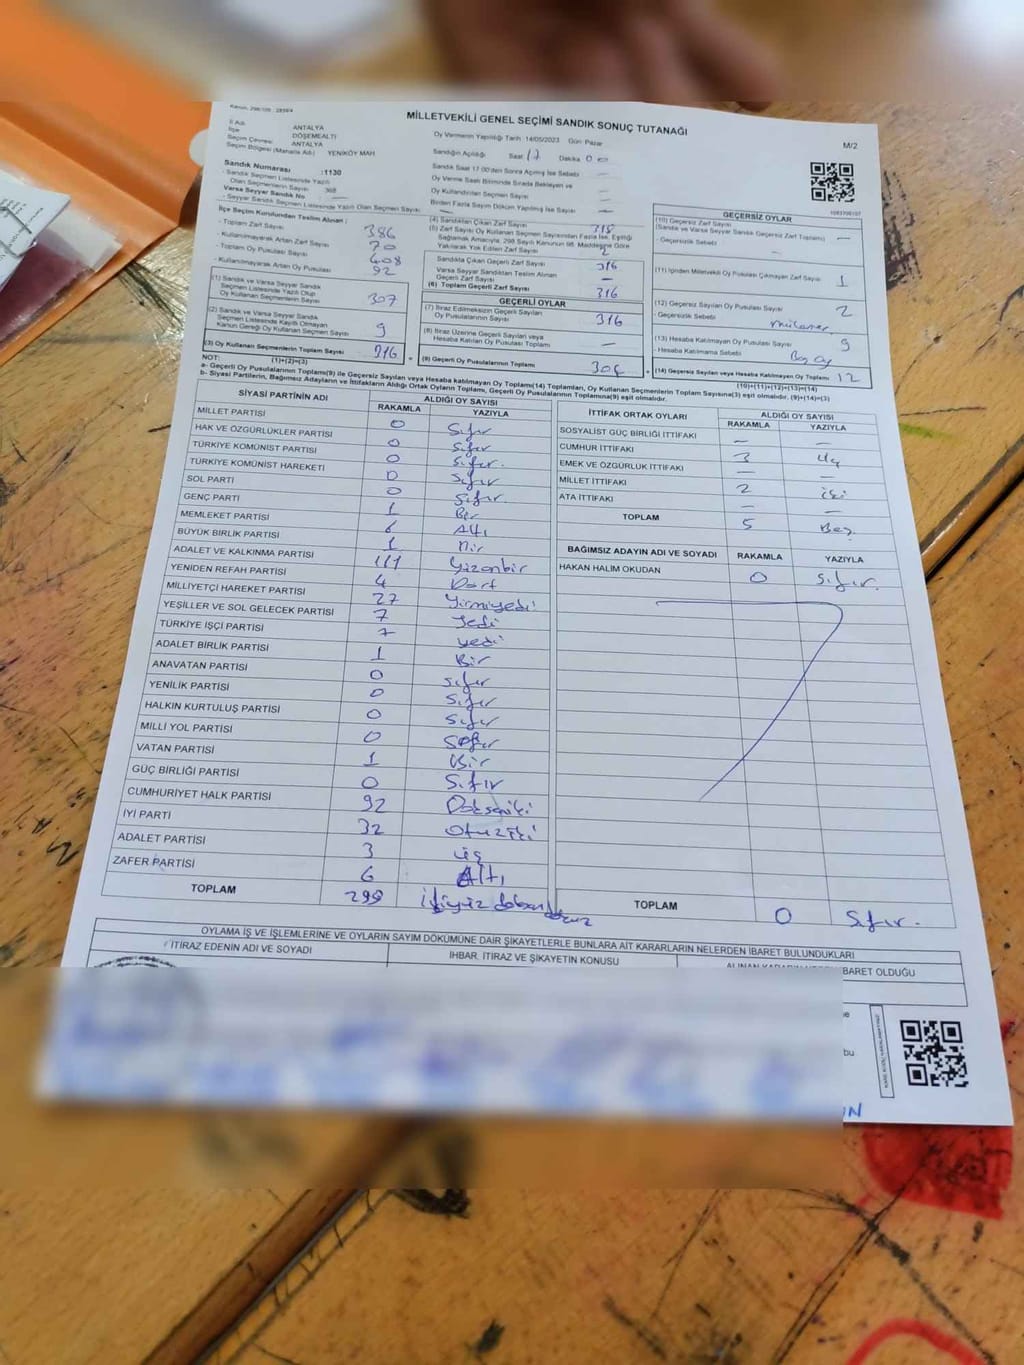 MİLLETVEKİLİ GENEL SEÇİMİ SANDIK SONUÇ TUTANAĞI
M/2
İl Adı ANTALYA
İlçe DÖŞEMEALTI
Seçim Çevresi ANTALYA
Seçim Bölgesi (Mahalle Adı) YENİKÖY MAH
Sandık Numarası :1130
- Sandık Seçmen Listesinde Yazılı
Olan Seçmenlerin Sayısı 368
Varsa Seyyar Sandık No —
- Seyyar Sandık Seçmen Listesinde Yazılı Olan Seçmen Sayısı —
Oy Vermenin Yapıldığı Tarih :14/05/2023 Gün: Pazar
Sandığın Açıldığı Saat 17 Dakika 0
Sandık Saat 17.00'den Sonra Açılmış İse Sebebi —
Oy Verme Saati Bitiminde Sırada Bekleyen ve
Oy Kullandırılan Seçmen Sayısı —
Birden Fazla Sayım Döküm Yapılmış İse Sayısı —
İlçe Seçim Kurulundan Teslim Alınan :
- Toplam Zarf Sayısı 386
- Kullanılmayarak Artan Zarf Sayısı 70
- Toplam Oy Pusulası Sayısı 408
- Kullanılmayarak Artan Oy Pusulası 92
(1) Sandık ve Varsa Seyyar Sandık
Seçmen Listesinde Yazılı Olup
Oy Kullanan Seçmenlerin Sayısı 307
(2) Sandık ve Varsa Seyyar Sandık
Seçmen Listesinde Kayıtlı Olmayan
Kanun Gereği Oy Kullanan Seçmen Sayısı 9
(3) Oy Kullanan Seçmenlerin Toplam Sayısı 316
(1)+(2)=(3)
(4) Sandıktan Çıkan Zarf Sayısı 318
(5) Zarf Sayısı Oy Kullanan Seçmen Sayısından Fazla İse, Eşitliği
Sağlamak Amacıyla, 298 Sayılı Kanunun 98. Maddesine Göre
Yakılarak Yok Edilen Zarf Sayısı 2
Sandıkta Çıkan Geçerli Zarf Sayısı 316
Varsa Seyyar Sandıktan Teslim Alınan
Geçerli Zarf Sayısı —
(6) Toplam Geçerli Zarf Sayısı 316
GEÇERLİ OYLAR
(7) İtiraz Edilmeksizin Geçerli Sayılan
Oy Pusulalarının Sayısı 316
(8) İtiraz Üzerine Geçerli Sayılan veya
Hesaba Katılan Oy Pusulası Toplamı —
(9) Geçerli Oy Pusulalarının Toplamı
GEÇERSİZ OYLAR
(10) Geçersiz Zarf Sayısı
(Sandık ve Seyyar Sandık Geçersiz Zarf Toplamı) —
- Geçersizlik Sebebi —
(11) İçinden Milletvekili Oy Pusulası Çıkmayan Zarf Sayısı 1
(12) Geçersiz Sayılan Oy Pusulası Sayısı 2
- Geçersizlik Sebebi
(13) Hesaba Katılmayan Oy Pusulası Sayısı 9
- Hesaba Katılmama Sebebi Boş oy
(14) Geçersiz Sayılan veya Hesaba Katılmayan Oy Toplamı 12
(10)+(11)+(12)+(13)=(14)
NOT:
a- Geçerli Oy Pusulalarının Toplamı(9) ile Geçersiz Sayılan veya Hesaba katılmayan Oy Toplamı(14) Toplamları, Oy Kullanan Seçmenlerin Toplam Sayısına(3) eşit olmalıdır. (9)+(14)=(3)
b- Siyasi Partilerin, Bağımsız Adayların ve İttifakların Aldığı Ortak Oyların Toplamı, Geçerli Oy Pusulalarının Toplamına(9) eşit olmalıdır.
SİYASİ PARTİNİN ADI ALDIĞI OY SAYISI
RAKAMLA YAZIYLA
MİLLET PARTİSİ 0 Sıfır
HAK VE ÖZGÜRLÜKLER PARTİSİ 0 Sıfır
TÜRKİYE KOMÜNİST PARTİSİ 0 Sıfır.
TÜRKİYE KOMÜNİST HAREKETİ 0 Sıfır
SOL PARTİ 0 Sıfır.
GENÇ PARTİ 1 Bir
MEMLEKET PARTİSİ 6 Altı
BÜYÜK BİRLİK PARTİSİ 1 Bir
ADALET VE KALKINMA PARTİSİ 111 Yüzonbir
YENİDEN REFAH PARTİSİ 4 Dört
MİLLİYETÇİ HAREKET PARTİSİ 27 Yirmiyedi
YEŞİLLER VE SOL GELECEK PARTİSİ 7 Yedi
TÜRKİYE İŞÇİ PARTİSİ 7 yedi
ADALET BİRLİK PARTİSİ 1 Bir
ANAVATAN PARTİSİ 0 Sıfır
YENİLİK PARTİSİ 0 Sıfır
HALKIN KURTULUŞ PARTİSİ 0 Sıfır
MİLLİ YOL PARTİSİ 0 Sıfır
VATAN PARTİSİ 1 Bir
GÜÇ BİRLİĞİ PARTİSİ 0 Sıfır
CUMHURİYET HALK PARTİSİ 92 Doksaniki
İYİ PARTİ 32 Otuziki
ADALET PARTİSİ 3 üç
ZAFER PARTİSİ 6 Altı
TOPLAM 299 ikiyüz doksandokuz
İTTİFAK ORTAK OYLARI ALDIĞI OY SAYISI
RAKAMLA YAZIYLA
SOSYALİST GÜÇ BİRLİĞİ İTTİFAKI — —
CUMHUR İTTİFAKI 3 üç
EMEK VE ÖZGÜRLÜK İTTİFAKI — —
MİLLET İTTİFAKI 2 iki
ATA İTTİFAKI — —
TOPLAM 5 Beş
BAĞIMSIZ ADAYIN ADI VE SOYADI RAKAMLA YAZIYLA
HAKAN HALİM OKUDAN 0 Sıfır.
TOPLAM 0 Sıfır.
OYLAMA İŞ VE İŞLEMLERİNE VE OYLARIN SAYIM DÖKÜMÜNE DAİR ŞİKAYETLERLE BUNLARA AİT KARARLARIN NELERDEN İBARET BULUNDUKLARI
İTİRAZ EDENİN ADI VE SOYADI
İHBAR, İTİRAZ VE ŞİKAYETİN KONUSU
BARET OLDUĞU
bu